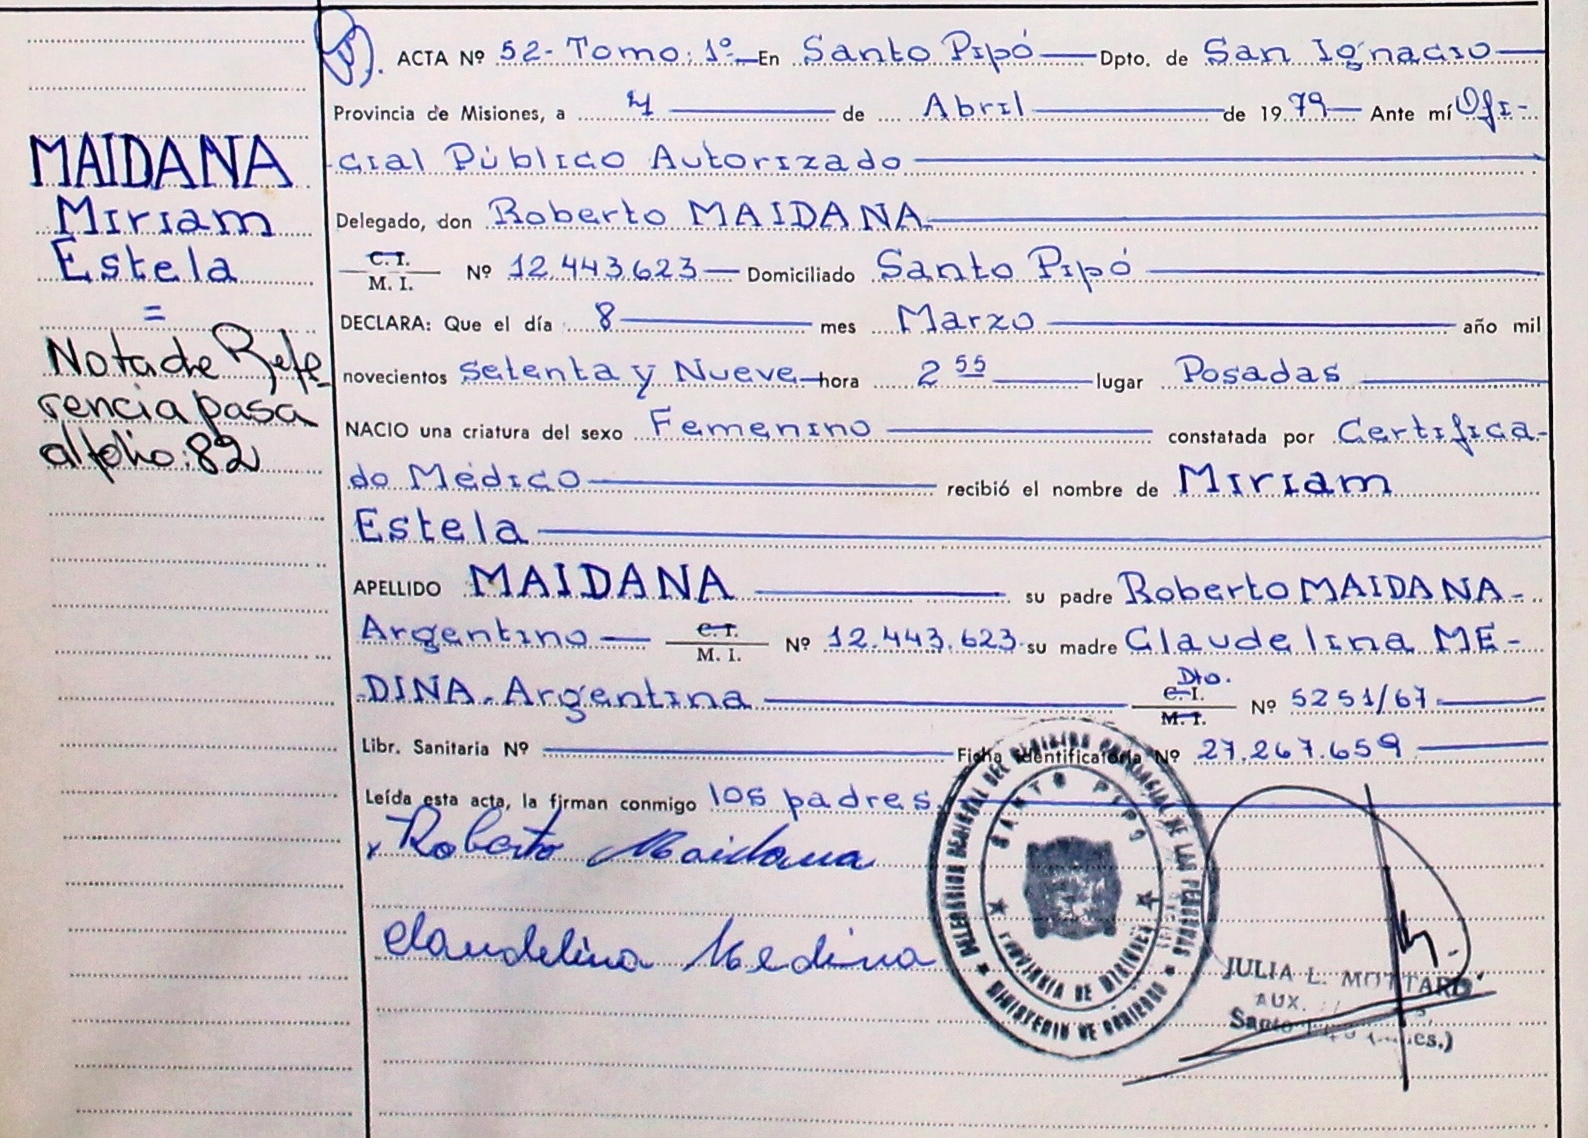 MAIDANA
Miriam
Estela
=
Nota de Refe
rencia pasa
al folio: 82
ACTA Nº 52- Tomo: 1º- En Santo Pipó Dpto. de San Ignacio
Provincia de Misiones, a 4 de Abril de 1979 Ante mí Ofi-
cial Público Autorizado
Delegado, don Roberto MAIDANA
C. I.
M. I. Nº 12.443.623 Domiciliado Santo Pipó
DECLARA: Que el día 8 mes Marzo año mil
novecientos setenta y Nueve hora 2 55 lugar Posadas
NACIO una criatura del sexo Femenino constatada por Certifica-
do Médico recibió el nombre de Miriam
Estela
APELLIDO MAIDANA su padre Roberto MAIDANA-
Argentino C. I.
M. I. Nº 12.443.623 su madre Claudelina ME-
DINA. Argentina Dto.
C. I.
M. I. Nº 5251/67
Libr. Sanitaria Nº Ficha Identificatoria Nº 27.267.659
Leída esta acta, la firman conmigo los padres.
x Roberto Maidana
Claudelina Medina
DELEGACION REGIONAL DEL REGISTRO PROVINCIAL DE LAS PERSONAS
SANTO PIPO
PROVINCIA DE MISIONES
MINISTERIO DE GOBIERNO
JULIA L. MOTTARD
AUX.
Santo